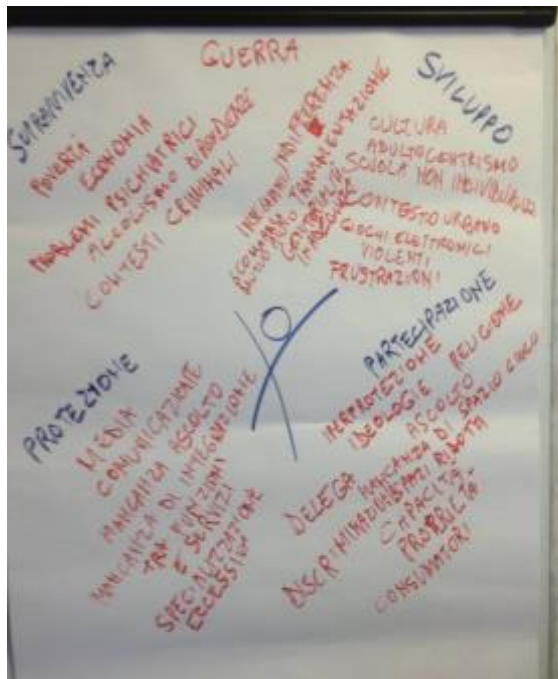 GUERRA
SOPRAVVIVENZA
POVERTÀ
ECONOMIA
PROBLEMI PSICHIATRICI
ALCOLISMO DIPENDENZE
CONTESTI CRIMINALI
INDIFFERENZA
SVILUPPO
CULTURA
ADULTOCENTRISMO
SCUOLA NON
CONTESTO URBANO
GIOCHI ELETTRONICI
VIOLENTI
FRUSTRAZIONI
PROTEZIONE
MEDIA
COMUNICAZIONE
MANCANZA ASCOLTO
MANCANZA DI INTEGRAZIONE
TRA FUNZIONI
E SERVIZI
SPECIALIZZAZIONE
ECCESSIVA
PARTECIPAZIONE
IPERPROTEZIONE
IDEOLOGIE RELIGIONE
ASCOLTO
DELEGA
MANCANZA DI SPAZIO GIOCO
CAPACITÀ
PROPRIETÀ
CONSUMATORI